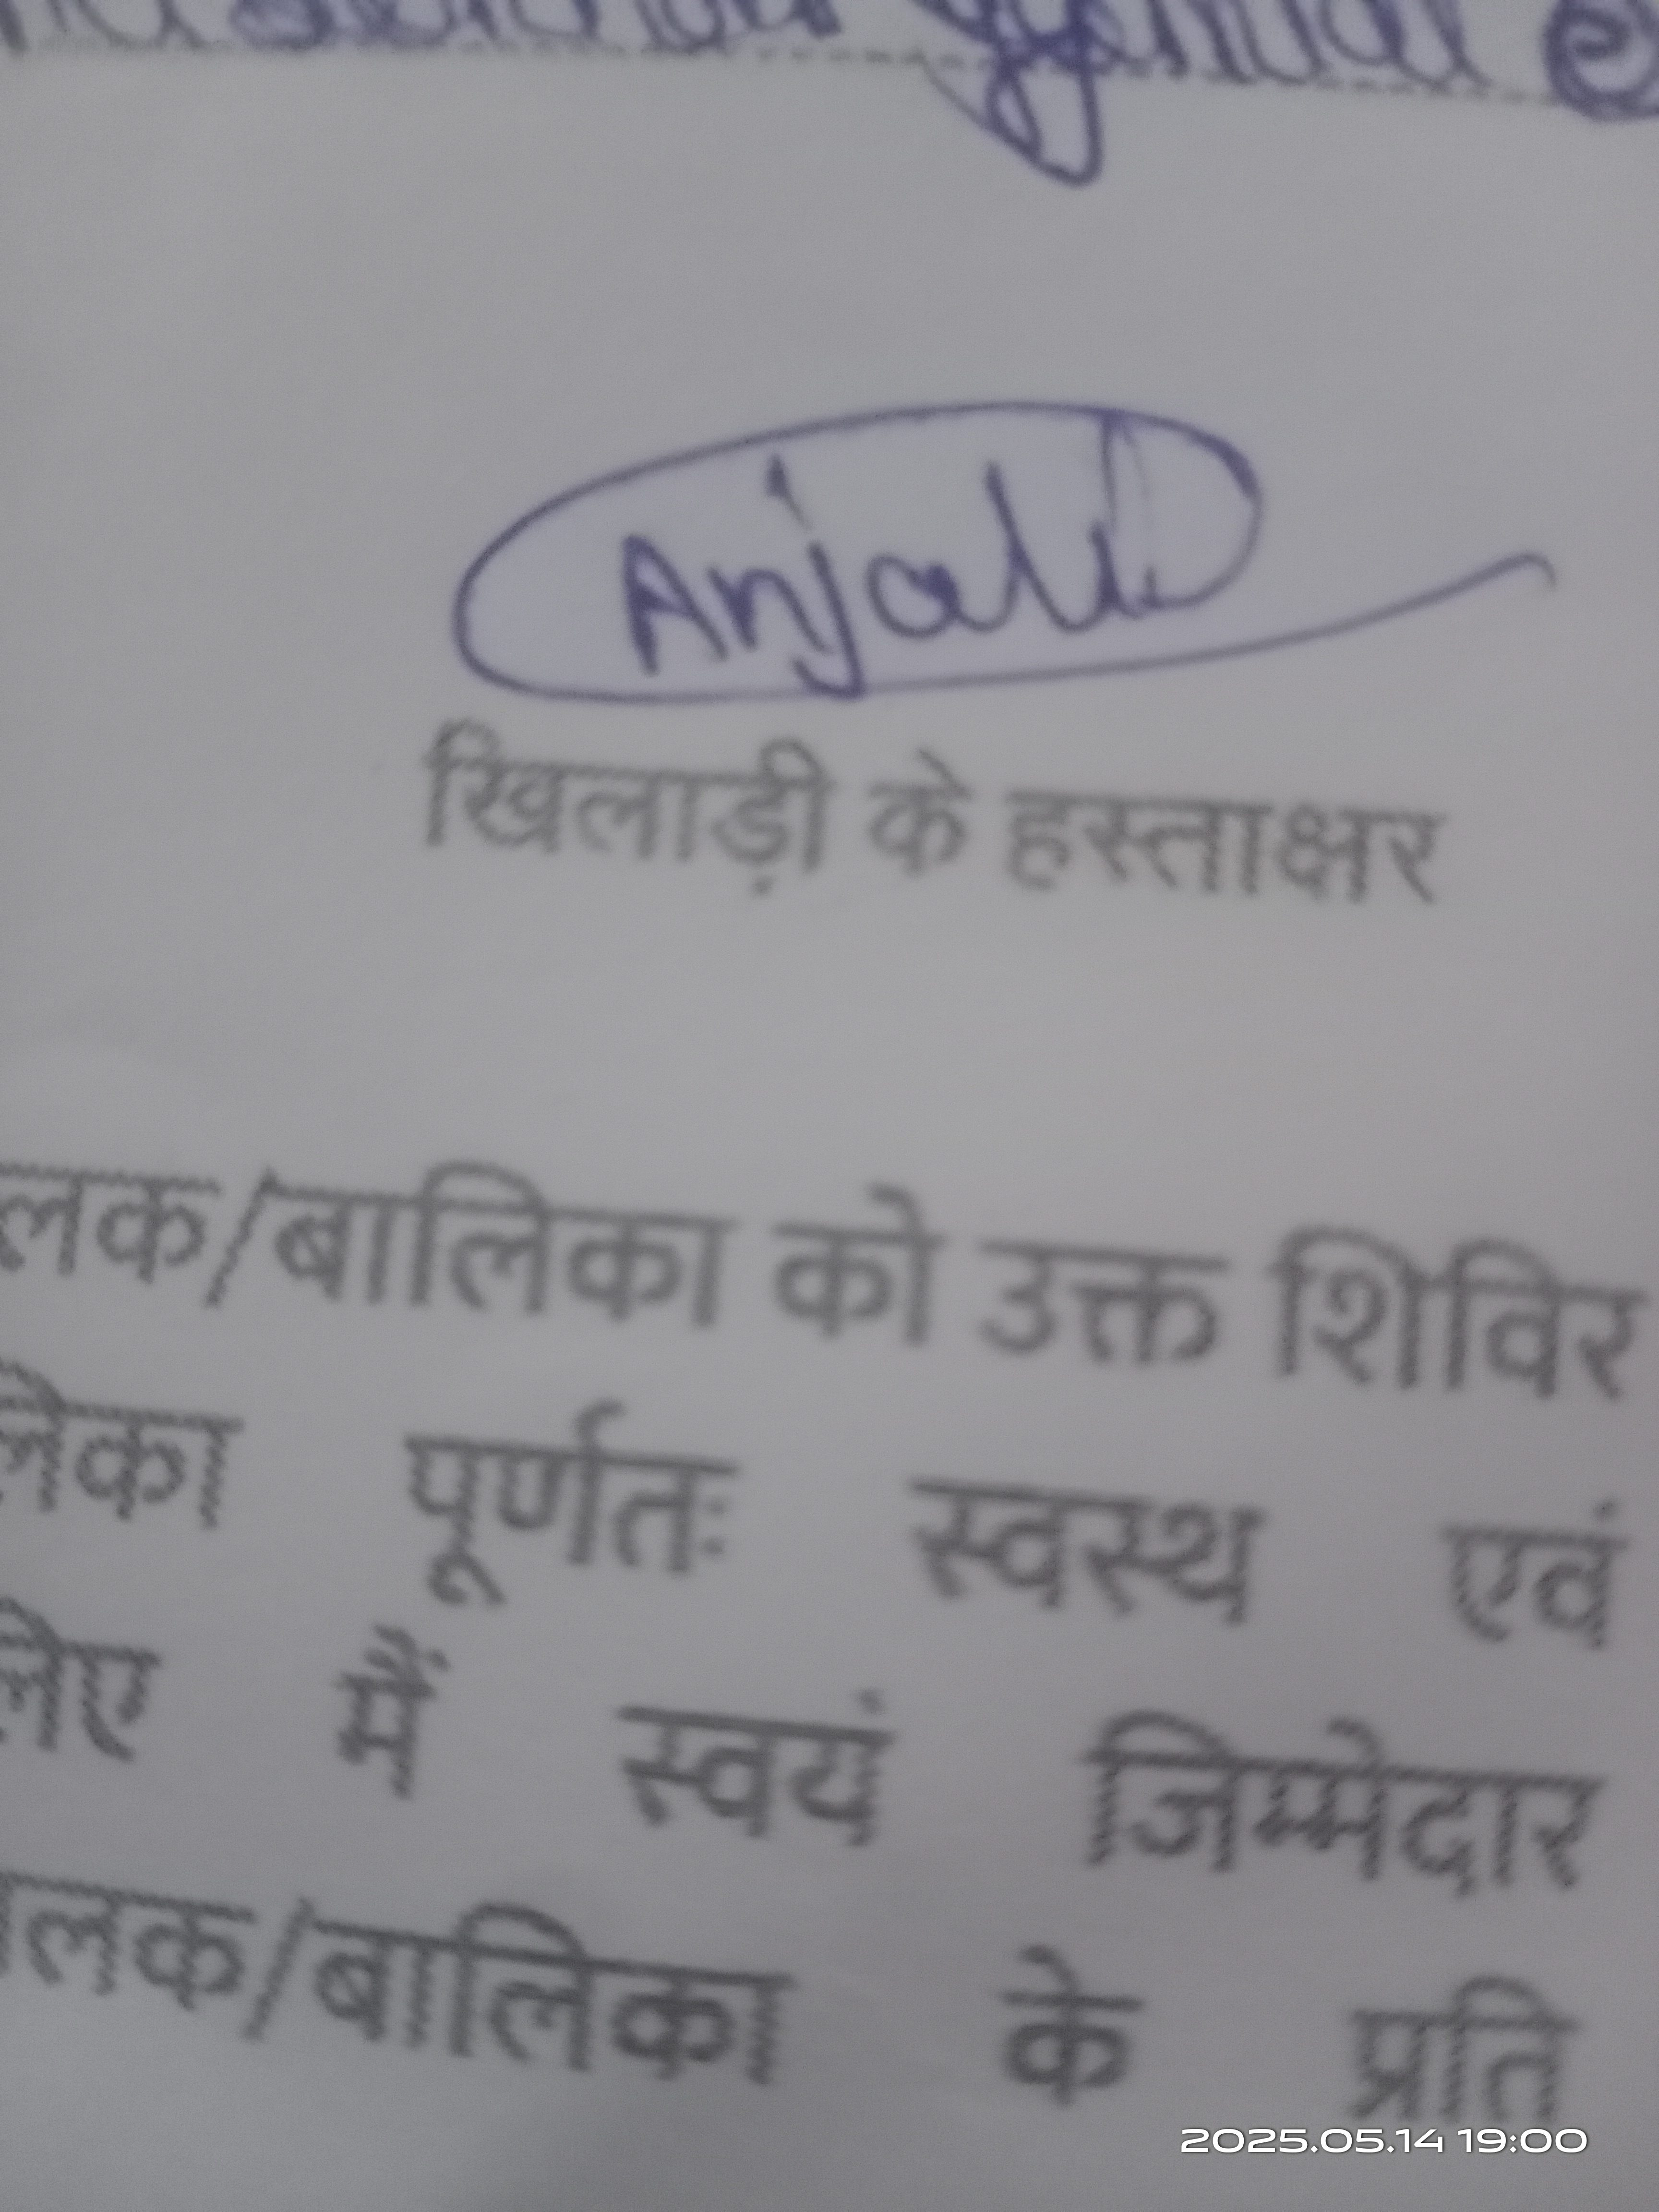 Anjali
खिलाड़ी के हस्ताक्षर
लक/बालिका को उक्त शिविर
लिका पूर्णतः स्वस्थ एवं
लिए मैं स्वयं जिम्मेदार
लक/बालिका के प्रति
2025.05.14 19:00